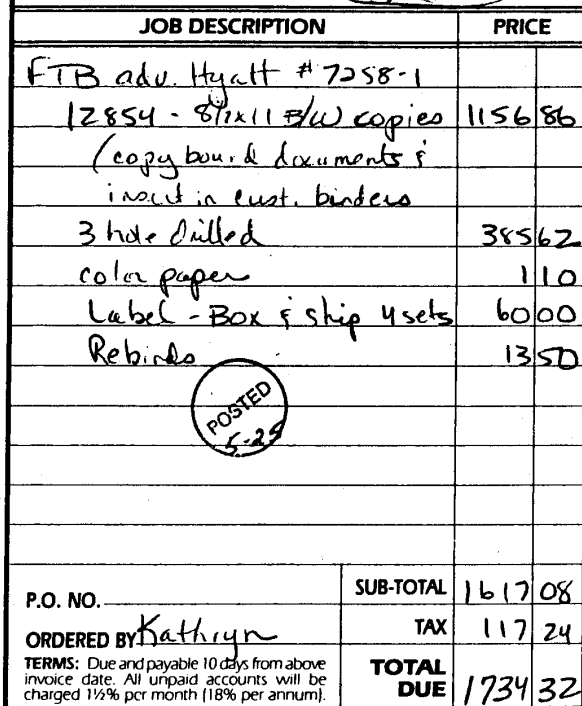 JOB DESCRIPTION PRICE
FTB adv. Hyatt #7258-1
12854 - 8½x11 B/W copies 1156 86
(copy bound documents &
insert in cust. binders
3 hole drilled 385 62
color paper 1 10
Label - Box & ship 4 sets 60 00
Rebinds 13 50
POSTED
5-25
P.O. NO.
SUB-TOTAL 1617 08
ORDERED BY Kathryn
TAX 117 24
TERMS: Due and payable 10 days from above
invoice date. All unpaid accounts will be
charged 1½% per month (18% per annum).
TOTAL
DUE 1734 32